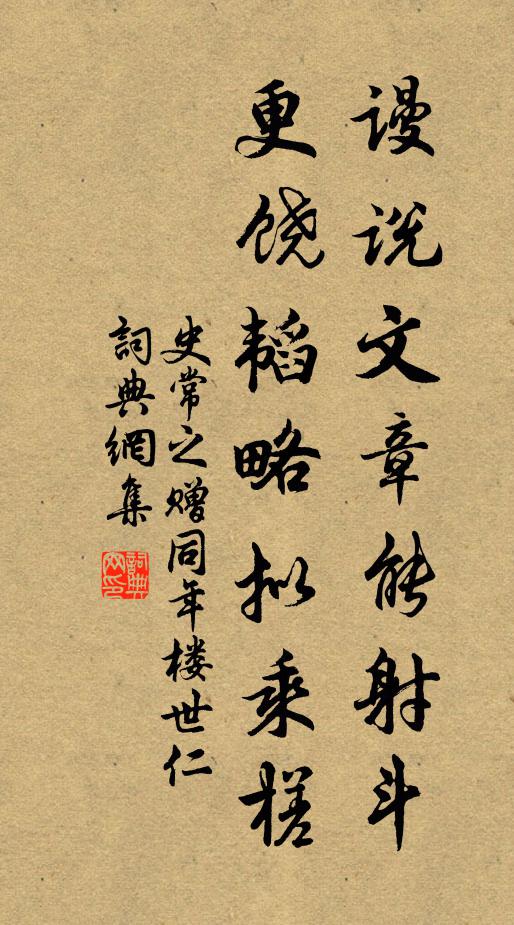 谩说文章能射斗
更饶韬略拟乘槎
史常之赠同年楼世仁
詞典網集
詞典网印